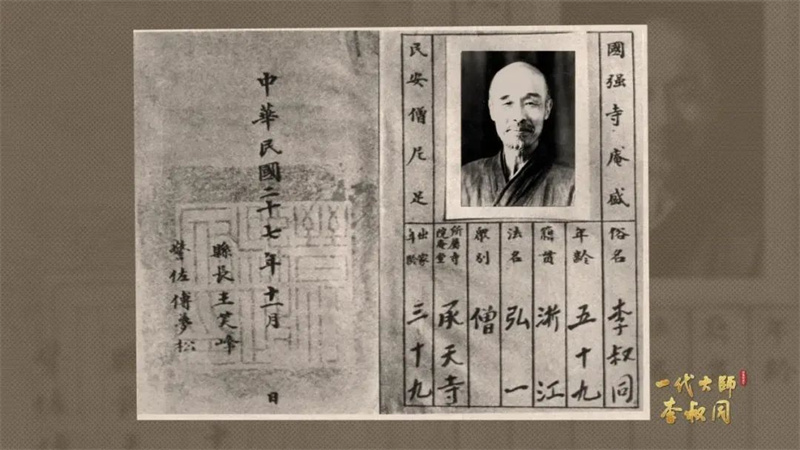 國强寺庵盛
民安僧尼足
俗名
李叔同
年齡
五十九
籍貫
浙江
法名
弘一
衆別
僧
所屬寺
院庵堂
承天寺
出家
年齡
三十九
中華民國二十七年十一月 日
縣長王笑峰
警佐傅夢松
一代大師
李叔同